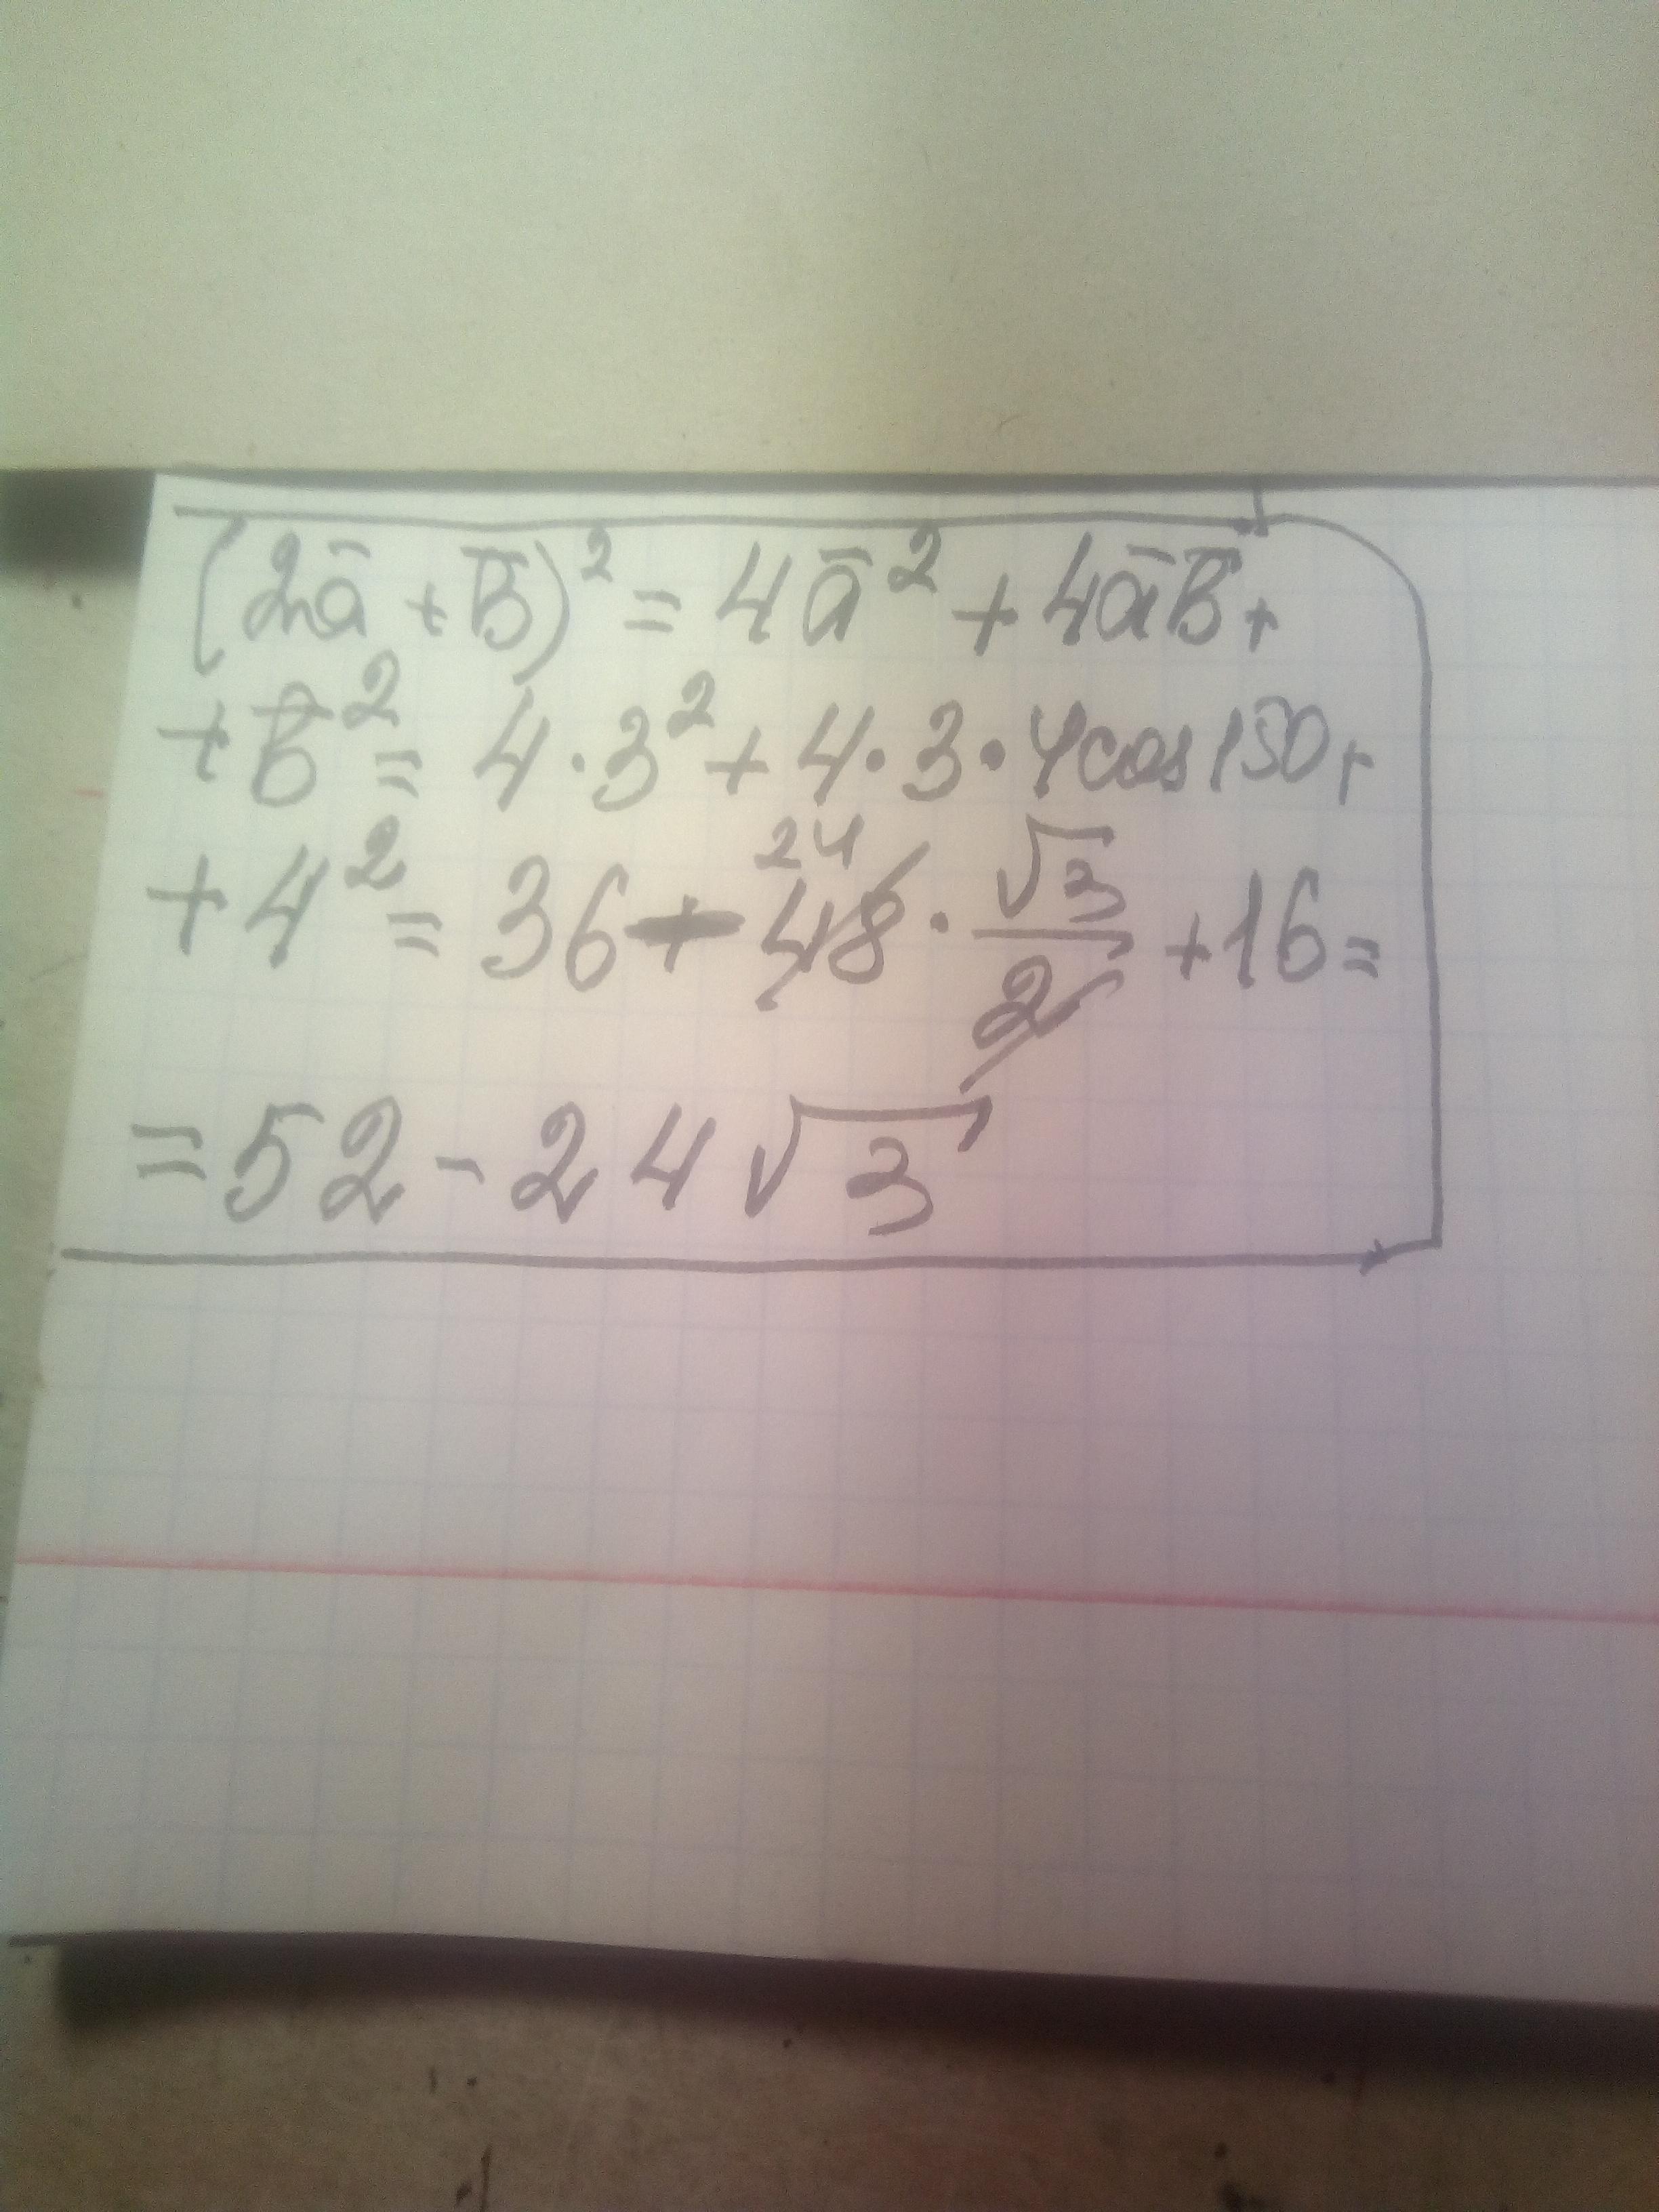 (2a̅ + b̅)² = 4a̅² + 4a̅b̅ +
+ b̅² = 4·3² + 4·3·4cos150 +
+ 4² = 36 - 48 24 · √3/2 + 16 =
= 52 - 24√3